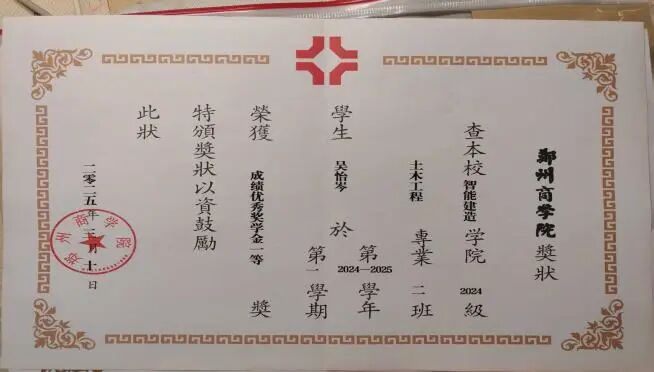 鄭州商學院 獎狀
查本校智能建造學院 2024 級
土木工程 專業 二 班
學生 吴怡岑 於 第 2024—2025 學年
第 一 學期
榮獲 成绩优秀奖学金一等 獎
特頒獎狀以資鼓勵
此狀
二〇二五年三月十日
鄭州商学院